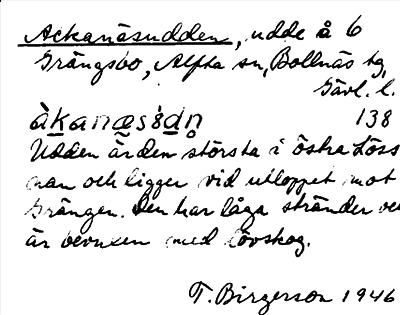 Ackanäsudden, udde å 6
Grängsbo, Alfta sn, Bollnäs tg,
Gävl. l.
àkanæsə̀dn̥ 138
Udden är den största i östra Löss
nan och ligger vid utloppet mot
Grängen. Den har låga stränder och
är bevuxen med lövskog.
T. Birgerson 1946